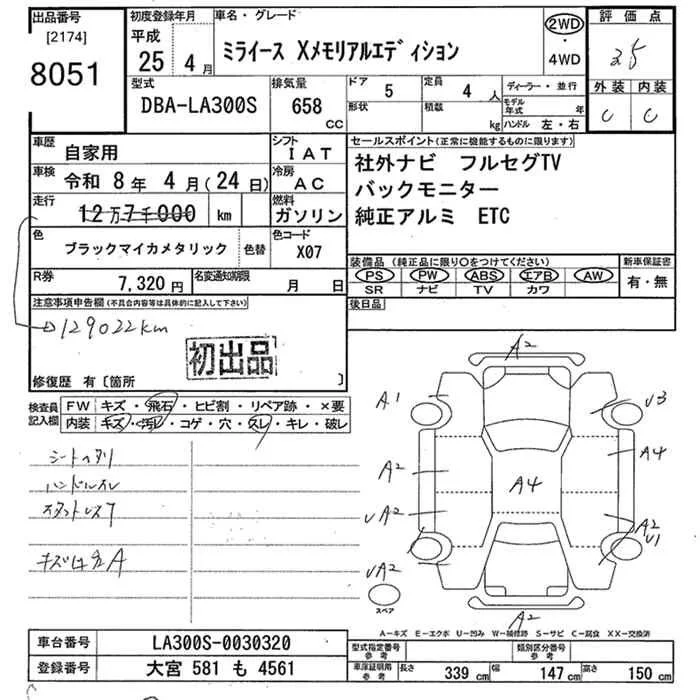 出品番号
[2174]
8051
初度登録年月
平成
25 4 月
車名・グレード
ミライース Xメモリアルエディション
2WD
・
4WD
評価点
3.5
外装 内装
C C
型式
DBA-LA300S
排気量
658
CC
ドア 5
形状
定員 4 人
積載 kg
ディーラー・並行
モデル年式 年
ハンドル 左・右
車歴
自家用
シフト
IAT
車検 令和 8 年 4 月(24 日)
冷房
AC
走行
12万7千000 km
燃料
ガソリン
色
ブラックマイカメタリック
色替
色コード
X07
R券
7,320 円
名変通知期限
月 日
セールスポイント(正常に機能するものに限ります)
社外ナビ フルセグTV
バックモニター
純正アルミ ETC
装備品 (純正品に限り〇をつけてください)
PS PW ABS エアB AW
SR ナビ TV カワ
新車保証書
有・無
後日品
注意事項申告欄(不具合内容等は具体的に記入して下さい)
→129022km
初出品
修復歴 有〔箇所 〕
検査員記入欄
FW キズ・飛石・ヒビ割・リペア跡・×要
内装 キズ・汚レ・コゲ・穴・スレ・キレ・破レ
シートヘタリ
ハンドルスレ
キズ凹多A
A2
A1
U3
A2
A4
A4
UA2
A2
U1
UA2
スペア
A2
A-キズ E-エクボ U-凹み W-補修跡 S-サビ C-腐食 XX-交換済
車台番号 LA300S-0030320
登録番号 大宮 581 も 4561
型式指定番号
参考
類別区分番号
参考
車庫証明用
参考
長さ 339 cm 幅 147 cm 高さ 150 cm